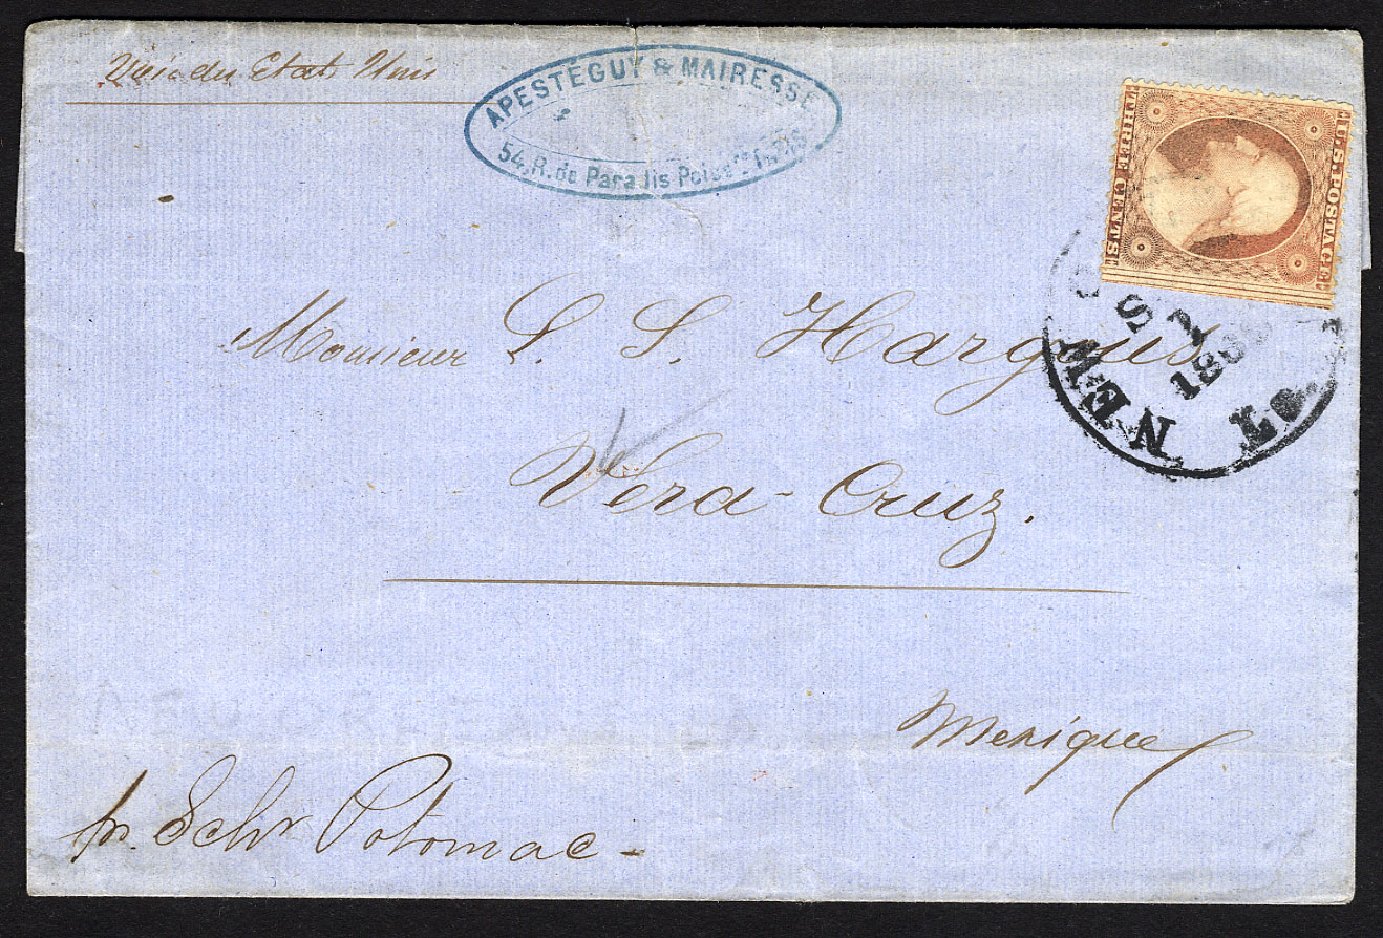 Voie des Etats Unis
APESTÉGUY & MAIRESSE
54, R. de Paradis Poiss
U.S. POSTAGE
THREE CENTS
Monsieur L. S. Hargous
NEW
Vera Cruz.
Mexique
pr. Schr Potomac